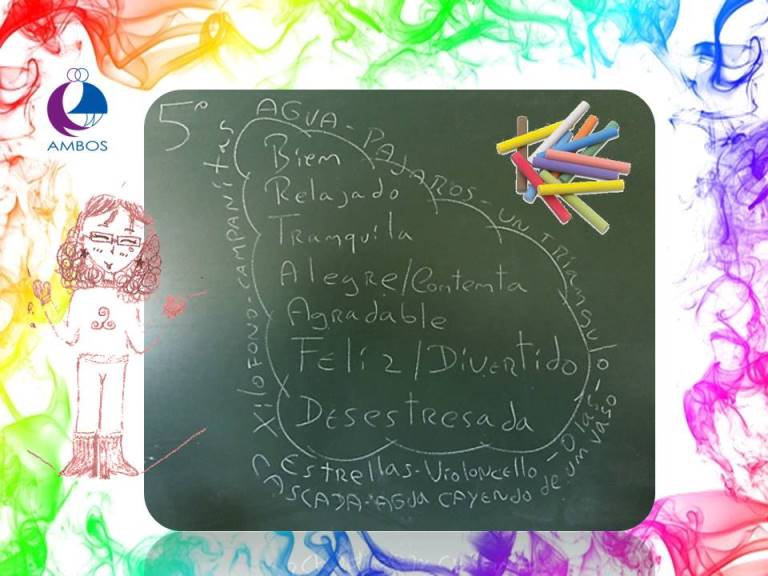 AMBOS
5º
AGUA - PAJAROS - UN TRIANGULO
- OLAS -
Bien
Relajado
Tranquila
Alegre/Contenta
Agradable
FELIZ/DIVERTIDO
DESESTRESADA
XILOFONO - CAMPANITAS
ESTRELLAS - VIOLONCELLO
CASCADA - AGUA CAYENDO de un VASO